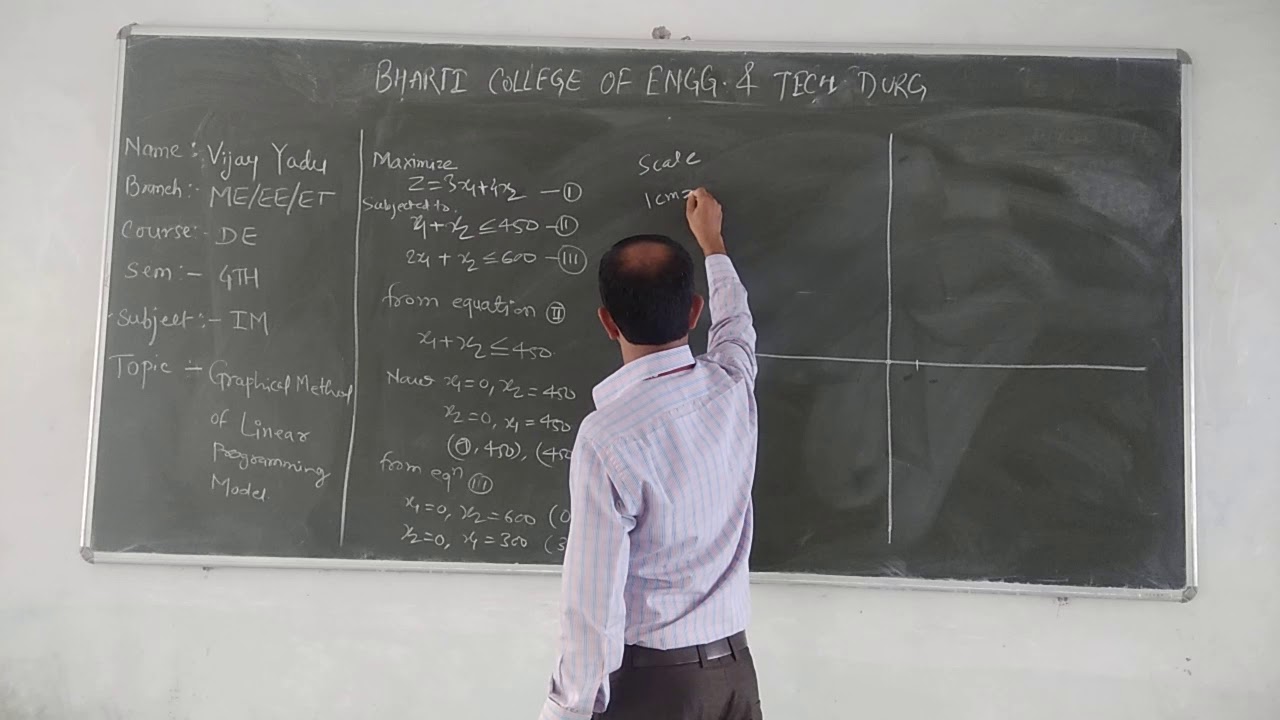 BHARTI COLLEGE OF ENGG. & TECH DURG
Name:- Vijay Yadu
Branch:- ME/EE/ET
Course:- DE
Sem:- 4TH
Subject:- IM
Topic - Graphical Method
of Linear
Programming
Model.
Maximize
Z=3x1+4x2 -(I)
Subjected to,
x1+x2≤450-(II)
2x1+x2≤600-(III)
from equation (II)
x1+x2≤450
Now x1=0, x2=450
x2=0, x1=450
(0,450), (450
from eqn (III)
x1=0, x2=600 (0
x2=0, x1=300 (3
Scale
1cm=